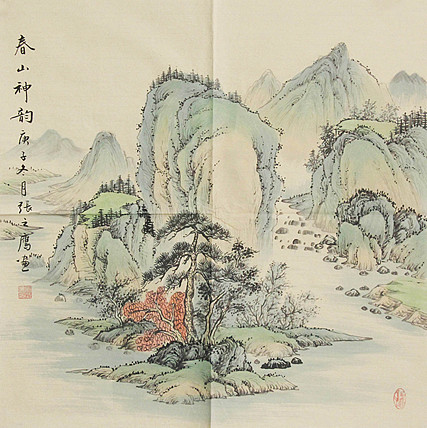 春山神韵庚子冬月张之鹰画